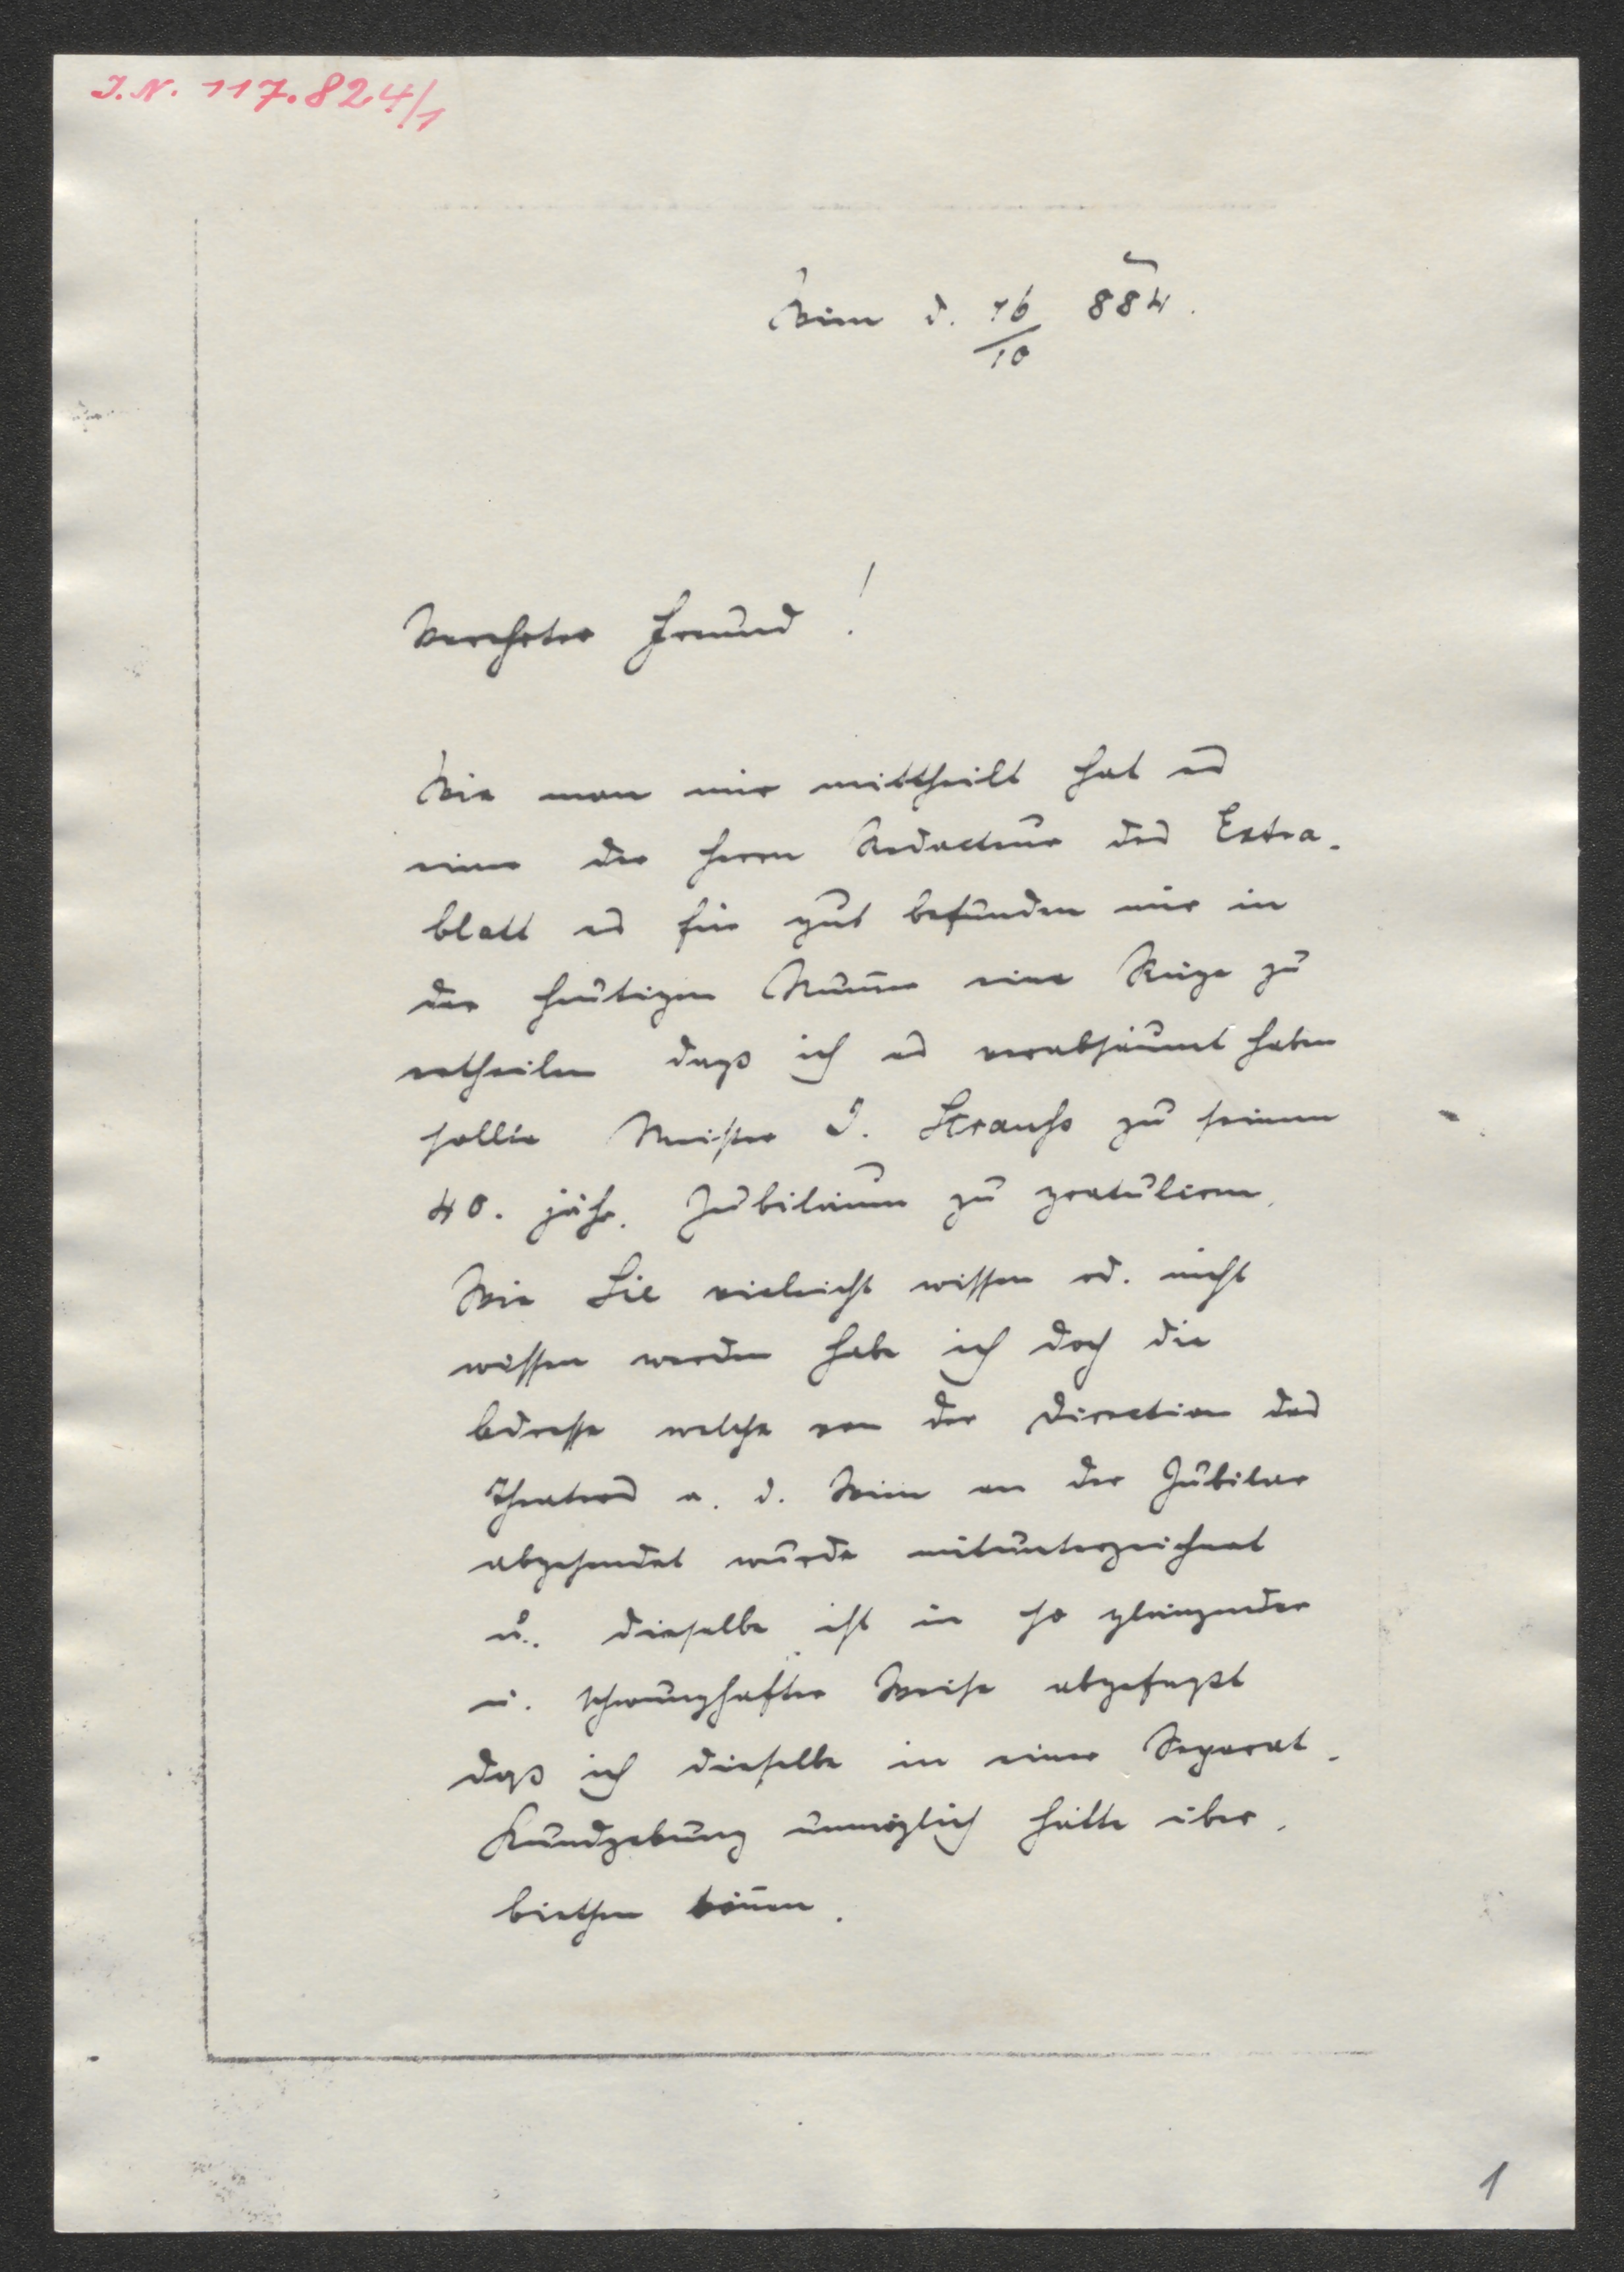 I.N. 117.824/1
Wien d. 16/10 884.
Verehrter Freund!
Wie man mir mittheilt hat es
einer der Herrn Redacteure des Extra-
blatt es für gut befunden mir in
der heutigen Num̄er eine Rüge zu
ertheilen daß ich es verabsäumt haben
sollte Meister J. Strauß zu seinem
40. jähr. Jubiläum zu gratuliren.
Wie Sie vieleicht wissen od. nicht
wissen werden habe ich doch die
Adresse welche von der Direction des
Theaters a. d. Wien an der Jubilar
abgesendet wurde mitunterzeichnet
u. dieselbe ist in so glänzender
u. schwunghafter Weise abgefaßt
daß ich dieselbe in einer Separat-
Kundgebung unmöglich hätte über-
biethen kön̄en.
1